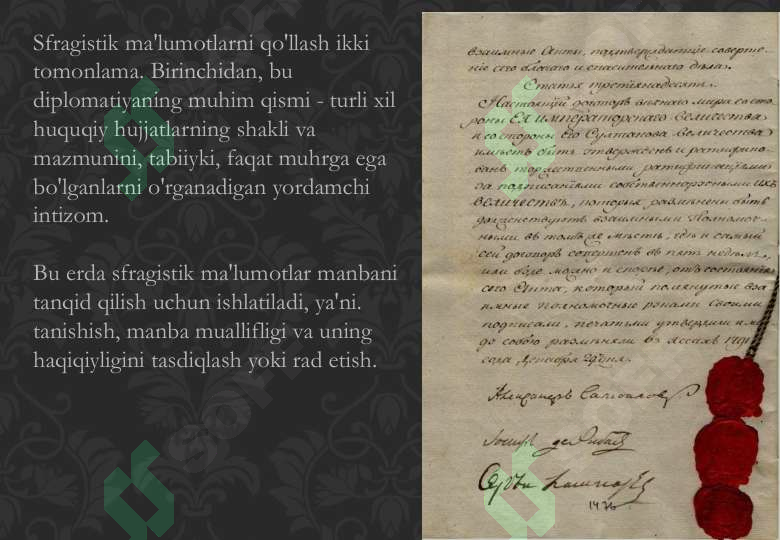 Sfragistik ma'lumotlarni qo'llash ikki
tomonlama. Birinchidan, bu
diplomatiyaning muhim qismi - turli xil
huquqiy hujjatlarning shakli va
mazmunini, tabiiyki, faqat muhrga ega
bo'lganlarni o'rganadigan yordamchi
intizom.
Bu erda sfragistik ma'lumotlar manbani
tanqid qilish uchun ishlatiladi, ya'ni.
tanishish, manba muallifligi va uning
haqiqiyligini tasdiqlash yoki rad etish.
взаимные Акты, подтверждающїе соверше-
нїе сего благаго и спасительнаго дѣла.
Статья третїянадесять.
Настоящїй договоръ вѣчнаго мира со сто
роны Ея Императорскаго Величества
и со стороны Его Султанова Величества
имѣетъ быть утвержденъ и ратифико-
ванъ торжественными ратификацїями
за подписанїями собственноручными ихъ
Величествъ, которыя размѣнены быть
долженствуютъ взаимными Полномоч-
ными въ томъ же мѣстѣ, гдѣ и самый
сей договоръ совершенъ въ пять недѣль,
или буде можно и скорѣе, отъ состоянїя
сего Акта, который помянутые вза
имные полномочные руками своими
подписали, печатьми утвердили и ме
до собою размѣняли въ Яссахъ 1791
года Декабря 29 дня.
Александръ Самойловъ
Іосифъ де Рибасъ
Сергѣй Лашкаревъ
1476